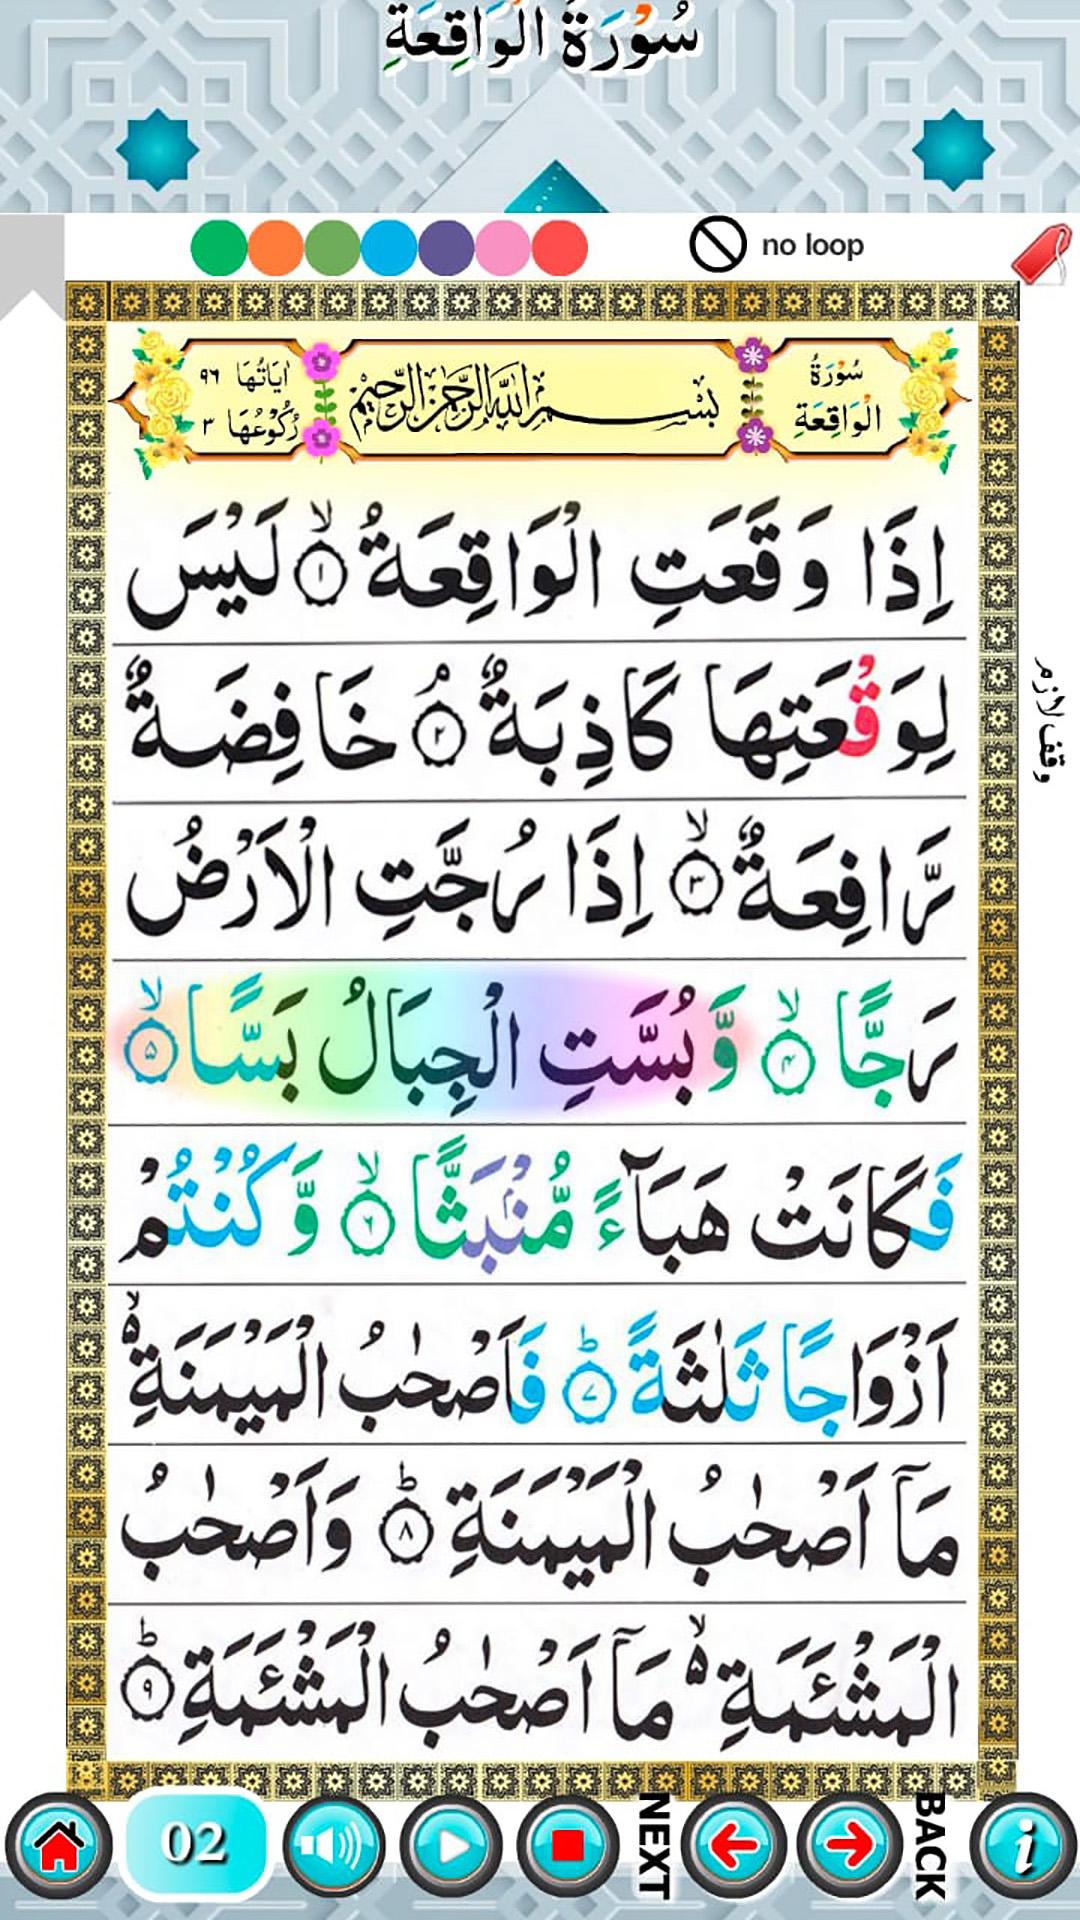 سُوْرَةُ الْوَاقِعَةِ
no loop
سُوْرَةُ الْوَاقِعَةِ
بِسْمِ اللّٰهِ الرَّحْمٰنِ الرَّحِيْمِ
اٰيَاتُهَا ٩٦
رُكُوْعُهَا ٣
اِذَا وَقَعَتِ الْوَاقِعَةُ ۙ‏﴿۱﴾ لَيْسَ
لِوَقْعَتِهَا كَاذِبَةٌ ۘ‏﴿۲﴾ خَافِضَةٌ
وقف لازم
رَّافِعَةٌ ۙ‏﴿۳﴾ اِذَا رُجَّتِ الْاَرْضُ
رَجًّا ۙ‏﴿۴﴾ وَّبُسَّتِ الْجِبَالُ بَسًّا ۙ‏﴿۵﴾
فَكَانَتْ هَبَآءً مُّنْۢبَثًّا ۙ‏﴿۶﴾ وَّكُنْتُمْ
اَزْوَاجًا ثَلٰثَةً ؕ‏﴿۷﴾ فَاَصْحٰبُ الْمَيْمَنَةِ ۙ۬
مَاۤ اَصْحٰبُ الْمَيْمَنَةِ ؕ‏﴿۸﴾ وَاَصْحٰبُ
الْمَشْئَمَةِ ۙ۬ مَاۤ اَصْحٰبُ الْمَشْئَمَةِ ؕ‏﴿۹﴾
02
NEXT
BACK
i